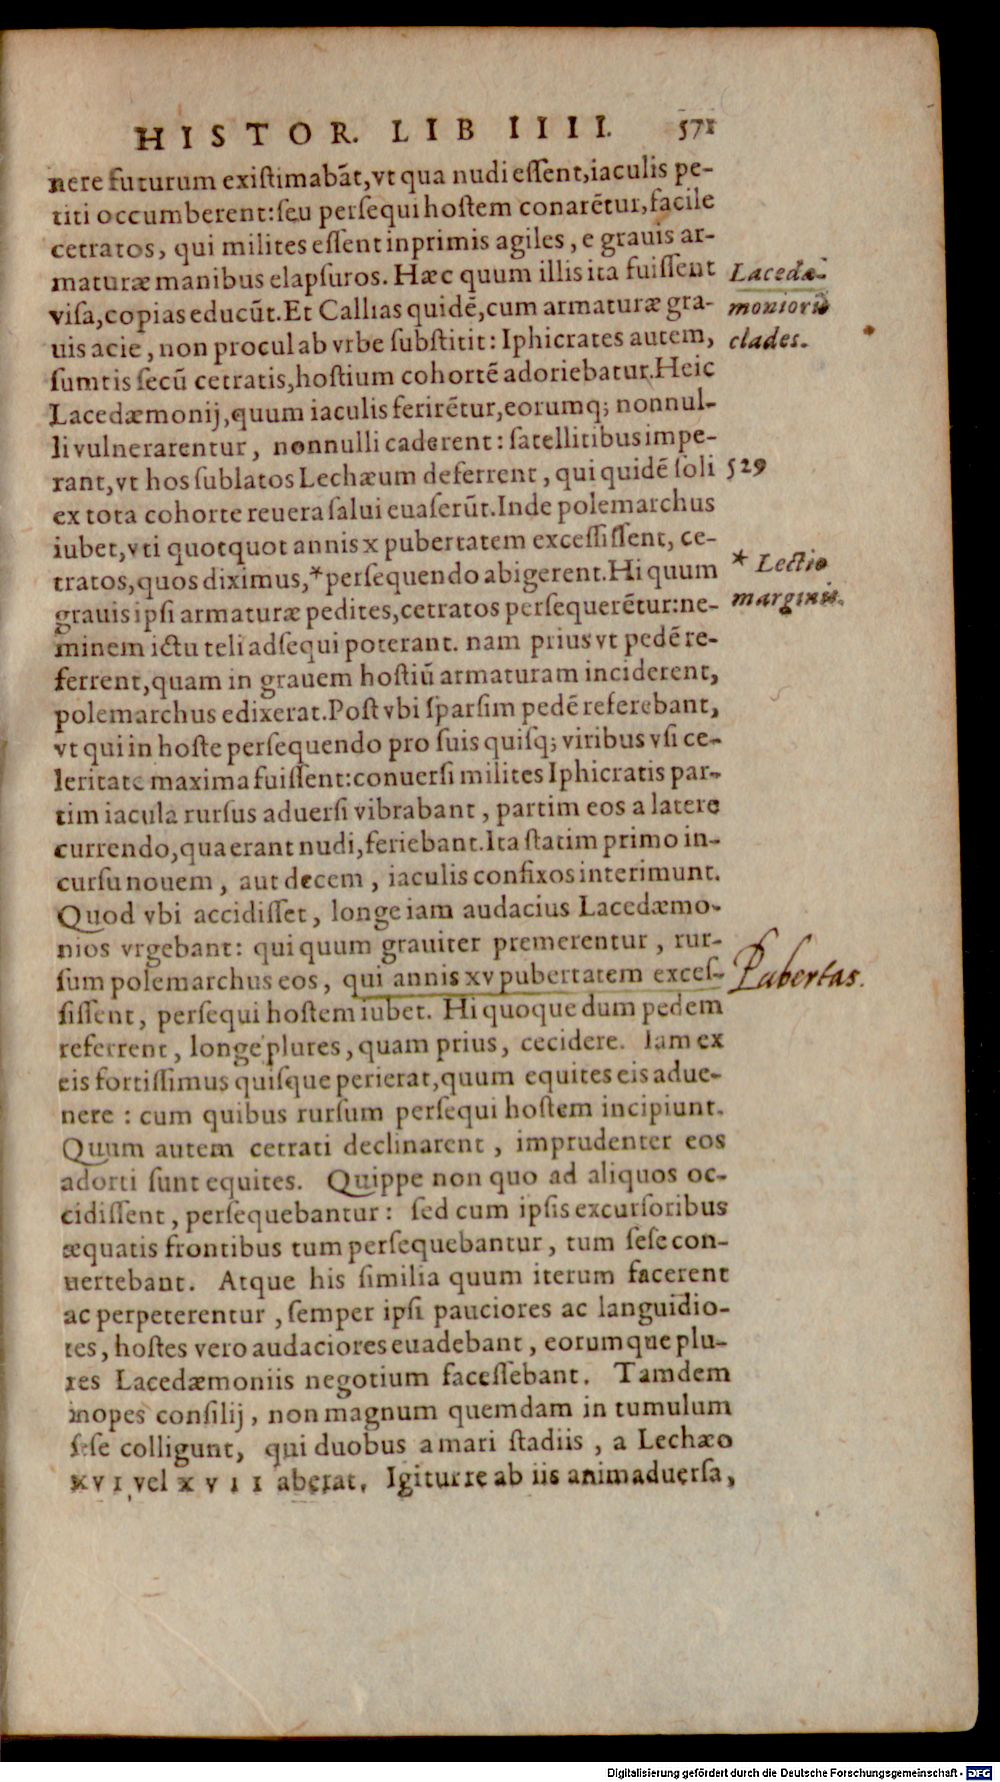 HISTOR. LIB IIII. 571
nere futurum existimabāt, vt qua nudi essent, iaculis pe-
titi occumberent: seu persequi hostem conarētur, facile
cetratos, qui milites essent inprimis agiles, e grauis ar-
maturæ manibus elapsuros. Hæc quum illis ita fuissent
visa, copias educūt. Et Callias quidē, cum armaturæ gra-
uis acie, non procul ab vrbe substitit: Iphicrates autem,
sumtis secū cetratis, hostium cohortē adoriebatur. Heic
Lacedæmonij, quum iaculis ferirētur, eorumq; nonnul-
li vulnerarentur, nonnulli caderent: satellitibus impe-
rant, vt hos sublatos Lechæum deferrent, qui quidē soli
ex tota cohorte reuera salui euaserūt. Inde polemarchus
iubet, vti quotquot annis x pubertatem excessissent, ce-
tratos, quos diximus, *persequendo abigerent. Hi quum
grauis ipsi armaturæ pedites, cetratos persequerētur: ne-
minem ictu teli adsequi poterant. nam prius vt pedē re-
ferrent, quam in grauem hostiū armaturam inciderent,
polemarchus edixerat. Post vbi sparsim pedē referebant,
vt qui in hoste persequendo pro suis quisq; viribus vsi ce-
leritate maxima fuissent: conuersi milites Iphicratis par-
tim iacula rursus aduersi vibrabant, partim eos a latere
currendo, qua erant nudi, feriebant. Ita statim primo in-
cursu nouem, aut decem, iaculis confixos interimunt.
Quod vbi accidisset, longe iam audacius Lacedæmo-
nios vrgebant: qui quum grauiter premerentur, rur-
sum polemarchus eos, qui annis xv pubertatem exces-
sissent, persequi hostem iubet. Hi quoque dum pedem
referrent, longe plures, quam prius, cecidere. Iam ex
eis fortissimus quisque perierat, quum equites eis adue-
nere: cum quibus rursum persequi hostem incipiunt.
Quum autem cetrati declinarent, imprudenter eos
adorti sunt equites. Quippe non quo ad aliquos oc-
cidissent, persequebantur: sed cum ipsis excursoribus
æquatis frontibus tum persequebantur, tum sese con-
uertebant. Atque his similia quum iterum facerent
ac perpeterentur, semper ipsi pauciores ac languidio-
res, hostes vero audaciores euadebant, eorumque plu-
res Lacedæmoniis negotium facessebant. Tamdem
inopes consilij, non magnum quemdam in tumulum
sese colligunt, qui duobus a mari stadiis, a Lechæo
XVI vel XVII aberat. Igitur re ab iis animaduersa,
Lacedæ-
moniorū
clades.
529
* Lectio
marginis.
Pubertas.
Digitalisierung gefördert durch die Deutsche Forschungsgemeinschaft - DFG